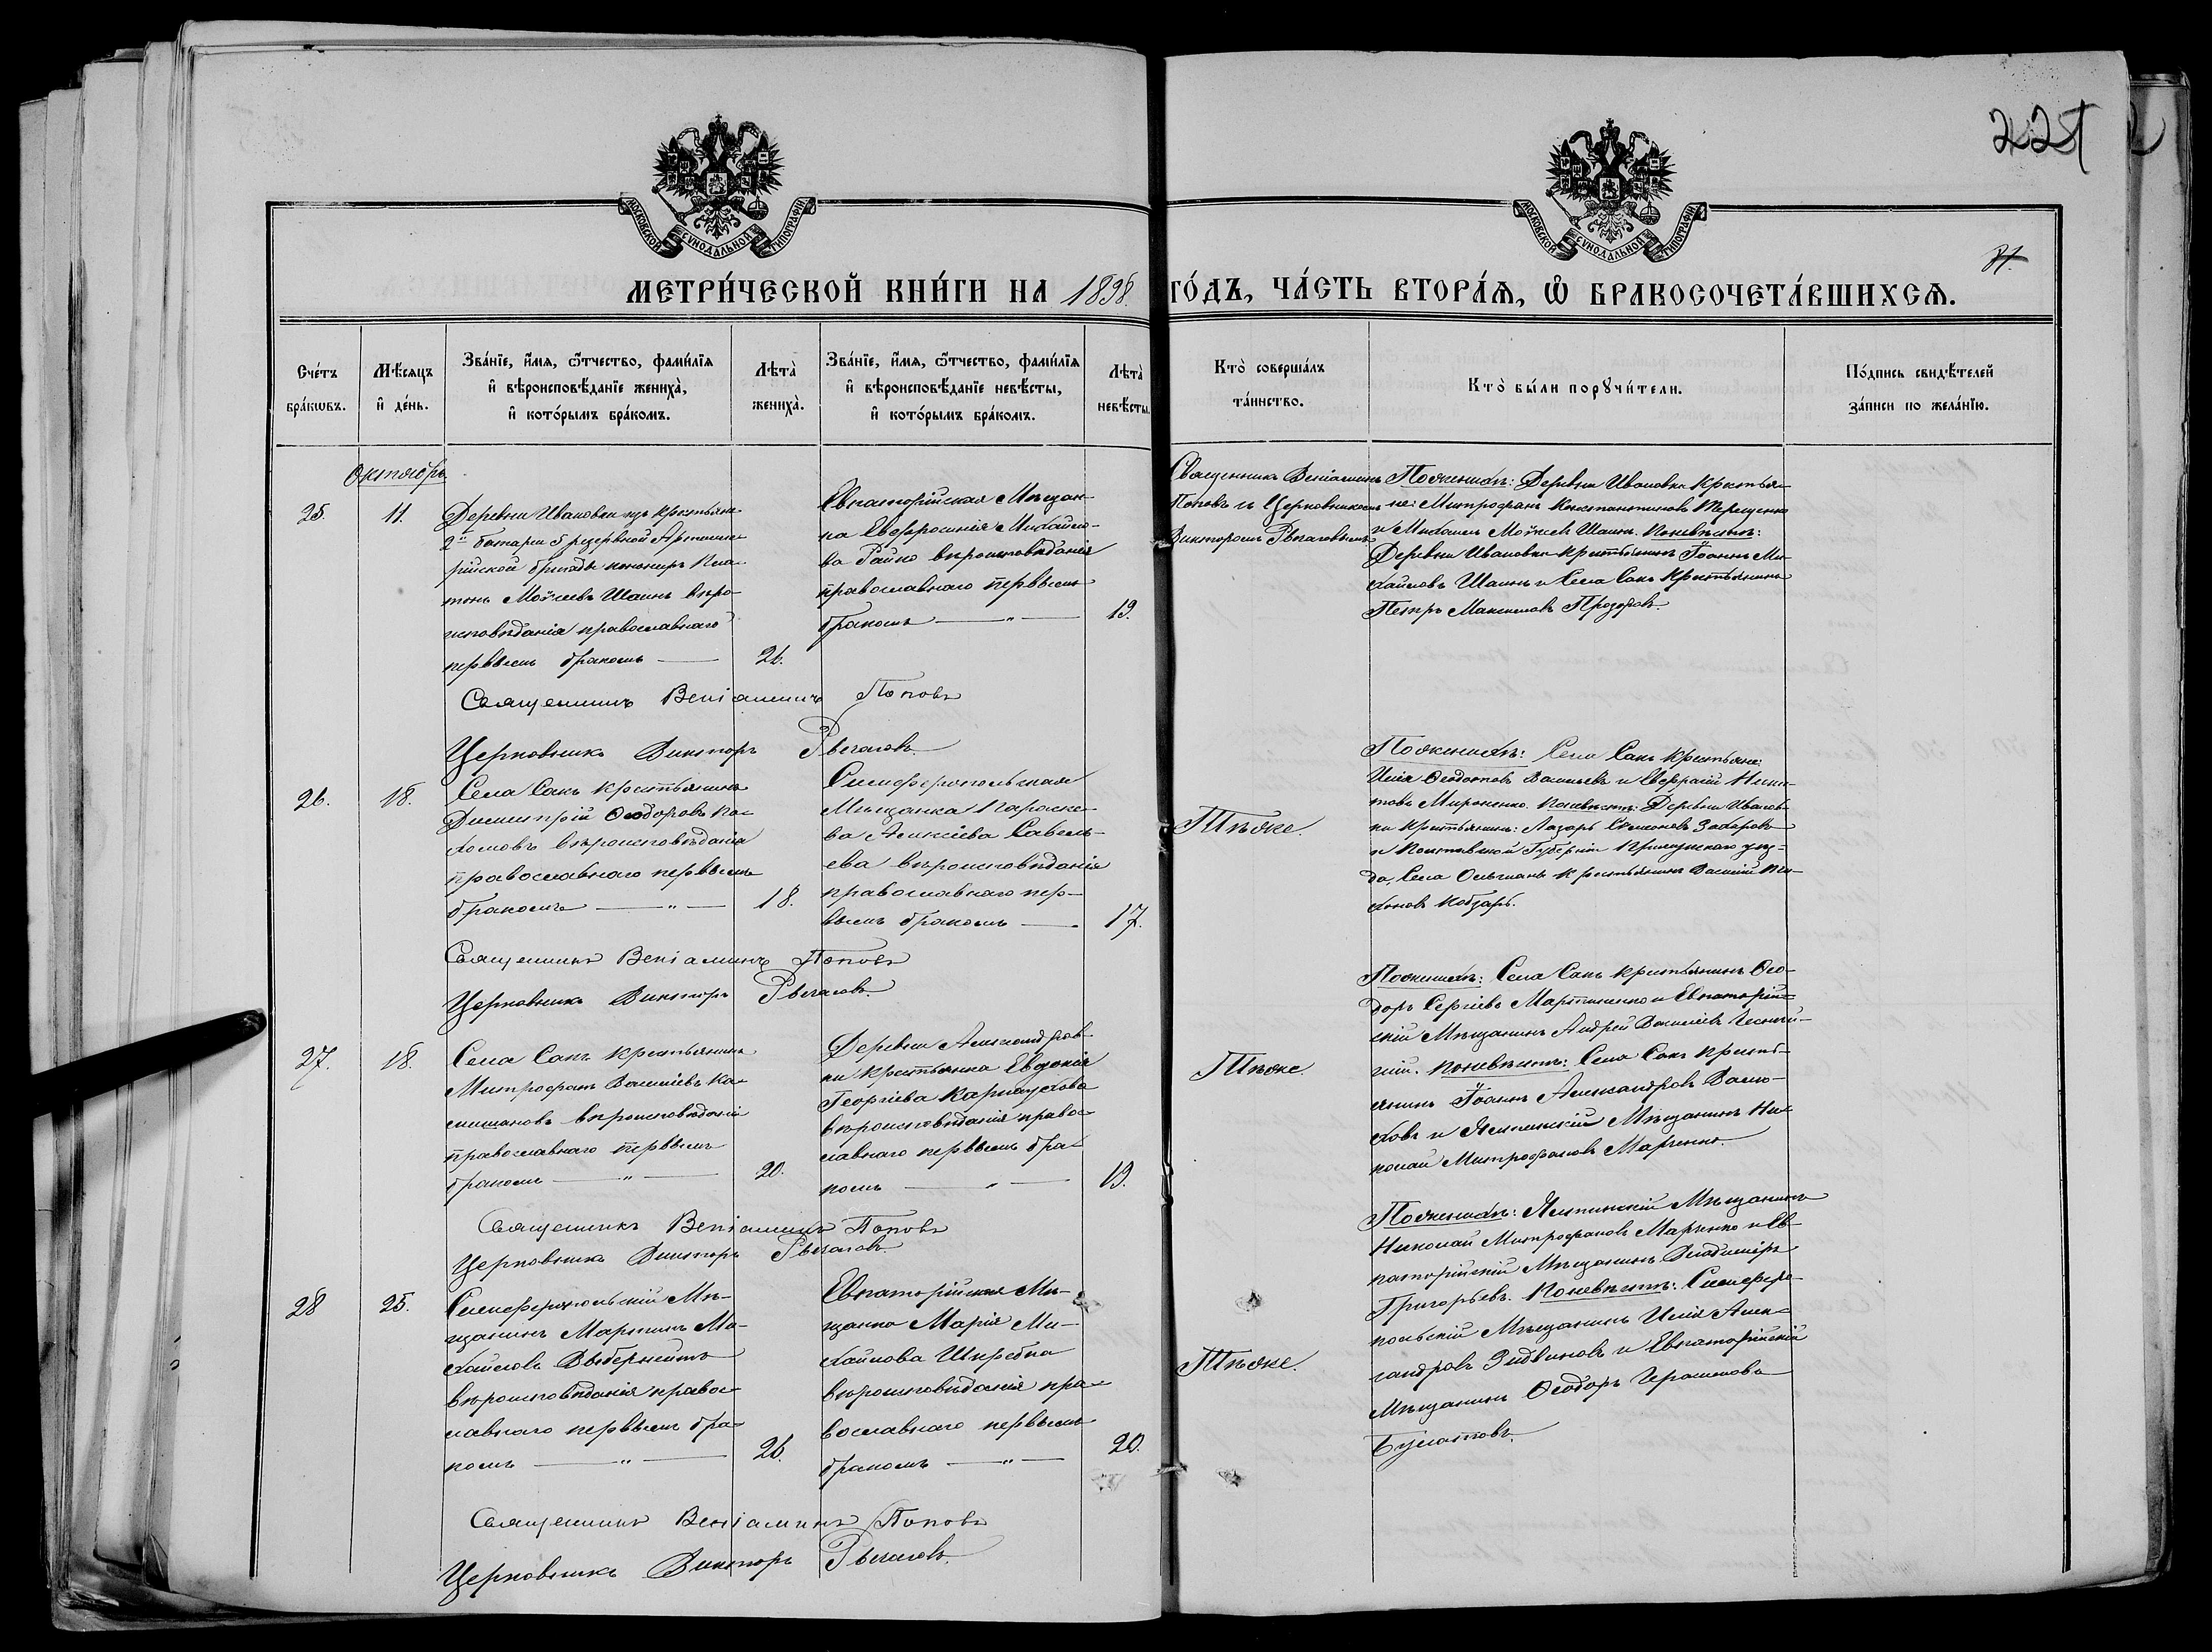 221
МОСКОВСКОЙ СѴНОДАЛЬНОЙ ТИПОГРАФІИ
МОСКОВСКОЙ СѴНОДАЛЬНОЙ ТИПОГРАФІИ
МЕТРИ́ЧЕСКОЙ КНИ́ГИ НА 1898. ГО́ДЪ, ЧА́СТЬ ВТОРА́Ѧ, Ѽ БРАКОСОЧЕТА́ВШИХСѦ.
Сче́тъ бра́кѡвъ.
Мѣ́сяцъ и҆ де́нь.
Зва́нїе, и҆́мя, ѻ҆́тчество, фами́лїя
и҆ вѣроисповѣ́данїе жениха̀,
и҆ кото́рымъ бра́комъ.
Лѣта̀
жениха̀.
Зва́нїе, и҆́мя, ѻ҆́тчество, фами́лїя
и҆ вѣроисповѣ́данїе невѣ́сты,
и҆ кото́рымъ бра́комъ.
Лѣта̀
невѣ́сты.
Кто̀ соверша́лъ
та́инство.
Кто̀ бы́ли порꙋчи́тели.
По́дпись свидѣ́телей
за́писи по жела́нїю.
Октябрь
25.
11.
Деревни Ивановки изъ крестьянъ
2й батареи 5 резервной Артилле-
рійской бригады канониръ Пла-
тонъ Моѵсеевъ Шаинъ вѣро-
исповѣданія православнаго
первымъ бракомъ
26.
Евпаторійская Мѣщан-
ка Евфросинія Михайло-
ва Райко вѣроисповѣданія
православнаго первымъ
бракомъ
19.
Священникъ Веніаминъ
Поповъ и Церковникомъ
Викторомъ Рычаговымъ
По женихѣ: Деревни Ивановки крестья-
не: Митрофанъ Константиновъ Терещенко
и Михаилъ Моѵсеевъ Шаинъ. По невѣстѣ:
Деревни Ивановки крестьянинъ Іоаннъ Ми-
хайловъ Шаинъ и Села Сакъ крестьянинъ
Петръ Максимовъ Прозоровъ.
Священникъ Веніаминъ Поповъ
Церковникъ Викторъ Рычаговъ
26.
18.
Села Сакъ крестьянинъ
Димитрій Ѳеодоровъ Па-
хомовъ вѣроисповѣданія
православнаго первымъ
бракомъ
18.
Симферопольская
Мѣщанка Параске-
ва Алексіева Савель-
ева вѣроисповѣданія
православнаго пер-
вымъ бракомъ
17.
Тѣже.
По женихѣ: Села Сакъ крестьяне:
Илія Ѳеодотовъ Васильевъ и Евфрасій Ники-
товъ Мироненко. По невѣстѣ: Деревни Иванов-
ки крестьянинъ: Лазарь Симоновъ Захаровъ
и Полтавской Губерніи Прилукскаго уѣз-
да, Села Ольшанъ крестьянинъ Василій Ти-
хоновъ Кобзарь.
Священникъ Веніаминъ Поповъ
Церковникъ Викторъ Рычаговъ.
27.
18.
Села Сакъ крестьянинъ
Митрофанъ Василіевъ Ка-
вѣроисповѣданія
православнаго первымъ
бракомъ
20.
Деревни Александров-
ки крестьянка Евдокія
Георгіева Карнаухова
вѣроисповѣданія право-
славнаго первымъ бра-
комъ
19.
Тѣже.
По женихѣ: Села Сакъ крестьянинъ Ѳео-
доръ Сергіевъ Мартыненко и Евпаторій-
скій Мѣщанинъ Андрей Василіевъ
По невѣстѣ: Села Сакъ крестья-
янинъ Іоаннъ Александровъ
и Ялтинскій Мѣщанинъ Ни-
колай Митрофановъ Марченко.
Священникъ Веніаминъ Поповъ
Церковникъ Викторъ Рычаговъ.
28
25.
Симферопольскій Мѣ-
щанинъ Мартинъ Ми-
хайловъ
вѣроисповѣданія право-
славнаго первымъ бра-
комъ
26.
Евпаторійская Мѣ-
щанка Марія Ми-
хайлова Шкребка
вѣроисповѣданія пра-
вославнаго первымъ
бракомъ
20.
Тѣже.
По женихѣ: Ялтинскій Мѣщанинъ
Николай Митрофановъ Марченко и Ев-
паторійскій Мѣщанинъ Владиміръ
Григорьевъ. По невѣстѣ: Симферо-
польскій Мѣщанинъ Илія Алек-
сандровъ и Евпаторійскій
Мѣщанинъ Ѳеодоръ Герасимовъ
Булатовъ.
Священникъ Веніаминъ Поповъ
Церковникъ Викторъ Рычаговъ.